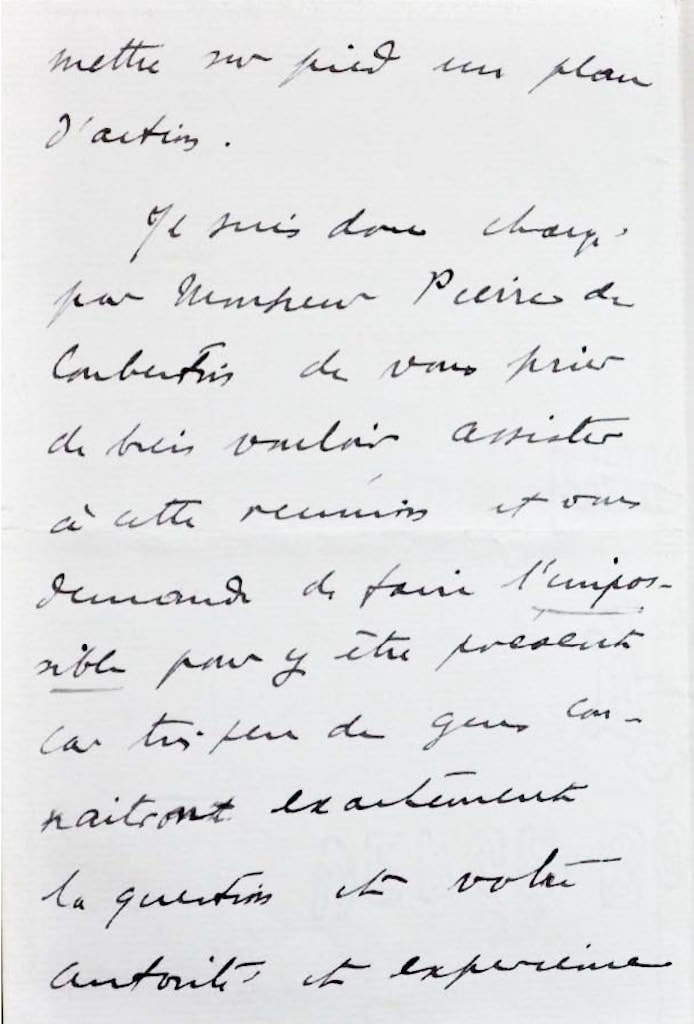 mettre sur pied un plan
d'action.
Je suis donc chargé
par Monsieur Pierre de
Coubertin de vous prier
de bien vouloir assister
à cette réunion et vous
demande de faire l'impos-
sible pour y être présent
car très peu de gens con-
naitront exactement
la question et votre
autorité et expérience